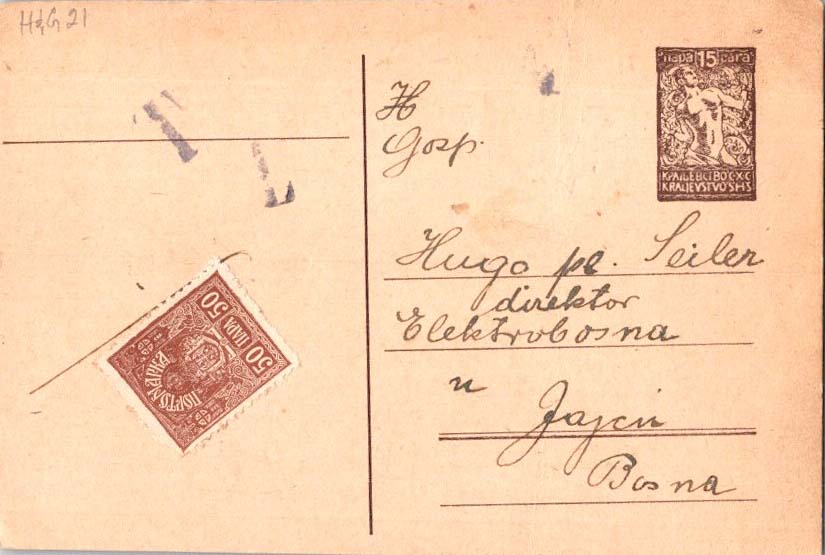 H&G 21
пара 15 para
КРАЉЕВСТВО С·Х·С
KRALJEVSTVO S·H·S
T
L
H
Gosp.
Hugo pl. Seiler
direktor
Elektrobosna
u
Jajcu
Bosna
50 ПАРА 50